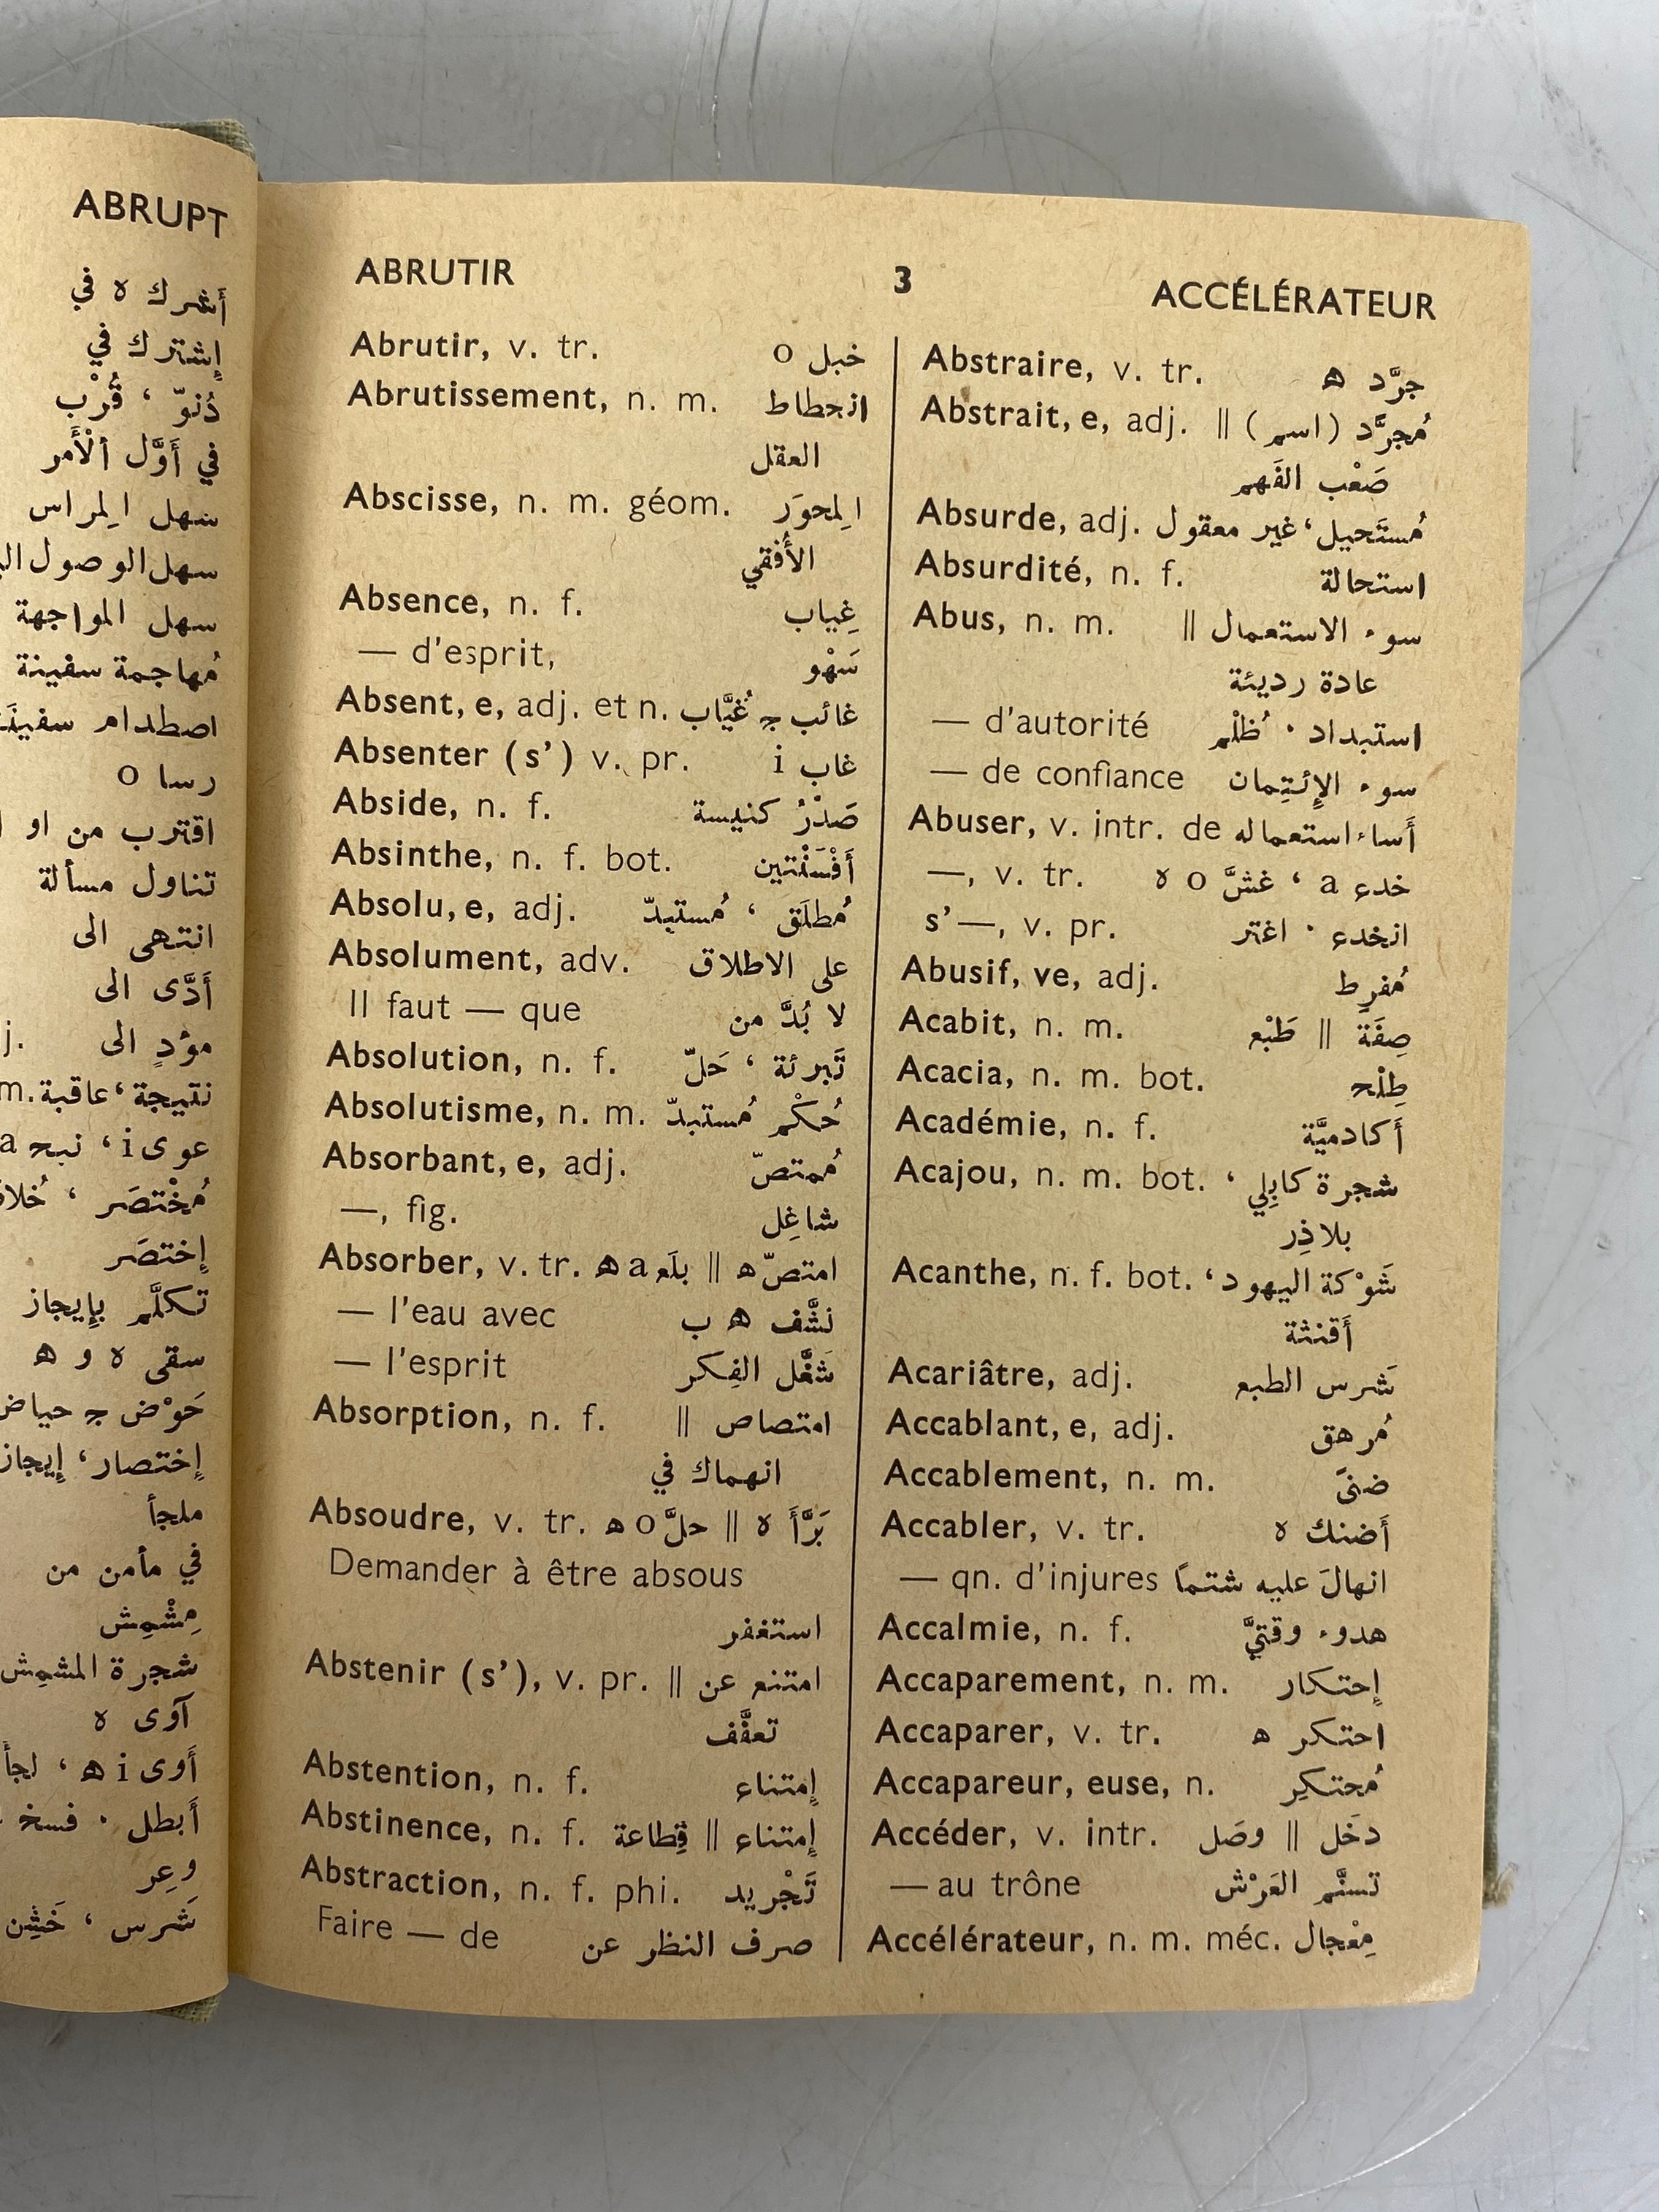 ABRUPT
أَشرك ه في
إِشترك في
دُنوّ ، قُرْب
في أَوَّل ٱلْأَمر
سهل المِراس
سهل الوصول
سهل المواجهة
مُهاجمة سفينة
اصطدام
رسا o
اقترب من او
تناول مسألة
انتهى الى
أَدَّى الى
j. مؤدٍ الى
m. نتيجة ، عاقبة
عوى i ، نبح a
مُخْتصَر ،
إِختصَر
تكلَّم بإِيجاز
سقى ه و ﻫ
حَوْض ج حياض
إِختصار ، إِيجاز
ملجأ
في مأمن من
مِشْمِش
شجرة المشمِش
آوى ه
أَوى i ﻫ ، لجأَ
أَبطل · فسخ
وعِر
شَرس ، خَشِن
ABRUTIR 3 ACCÉLÉRATEUR
Abrutir, v. tr. خبل o
Abrutissement, n. m. انحطاط
العقل
Abscisse, n. m. géom. المِحوَر
الأُفقي
Absence, n. f. غِياب
— d'esprit, سَهْو
Absent, e, adj. et n. غائب ج غُيَّاب
Absenter (s') v. pr. غاب i
Abside, n. f. صَدْرُ كنيسة
Absinthe, n. f. bot. أَفْسَنْتين
Absolu, e, adj. مُطلَق ، مُستبدّ
Absolument, adv. على الاطلاق
Il faut — que لا بُدَّ من
Absolution, n. f. تَبرئة ، حَلّ
Absolutisme, n. m. حُكْم مُستبدّ
Absorbant, e, adj. مُمتصّ
—, fig. شاغِل
Absorber, v. tr. امتصّ ﻫ || بلَع a ﻫ
— l'eau avec نشَّف ﻫ ب
— l'esprit شَغَّل الفِكر
Absorption, n. f. امتصاص ||
انهماك في
Absoudre, v. tr. بَرَّأَ ه || حلَّ o ﻫ
Demander à être absous
استغفر
Abstenir (s'), v. pr. امتنع عن ||
تعفَّف
Abstention, n. f. إِمتناع
Abstinence, n. f. إِمتناع || قِطاعة
Abstraction, n. f. phi. تَجْريد
Faire — de صرف النظر عن
Abstraire, v. tr. جرَّد ﻫ
Abstrait, e, adj. مُجرَّد (اسم) ||
صَعْب الفَهم
Absurde, adj. مُستَحيل ، غير معقول
Absurdité, n. f. استحالة
Abus, n. m. سوء الاستعمال ||
عادة رديئة
— d'autorité استبداد · ظُلْم
— de confiance سوء الإِئتِمان
Abuser, v. intr. de أَساء استعماله
—, v. tr. خدع a ، غشَّ o ه
s'—, v. pr. انخدع · اغتر
Abusif, ve, adj. مُفرِط
Acabit, n. m. صِفَة || طَبْع
Acacia, n. m. bot. طِلْح
Académie, n. f. أَكادميَّة
Acajou, n. m. bot. شجرة كابِلي ،
بلاذِر
Acanthe, n. f. bot. شَوْكة اليهود ،
أَقنثة
Acariâtre, adj. شَرس الطبع
Accablant, e, adj. مُرهق
Accablement, n. m. ضنىً
Accabler, v. tr. أَضنك ه
— qn. d'injures انهالَ عليه شتمًا
Accalmie, n. f. هدوء وقتيَّ
Accaparement, n. m. إِحتكار
Accaparer, v. tr. احتكر ﻫ
Accapareur, euse, n. مُحتكِر
Accéder, v. intr. دخَل || وصَل
— au trône تسنَّم العَرْش
Accélérateur, n. m. méc. مِعْجال